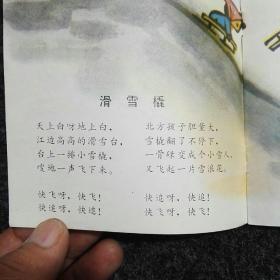 滑雪橇
天上白呀地上白，
江边高高的滑雪台，
台上一排小雪橇，
唆地一声飞下来。
快飞呀，快飞！
快追呀，快追！
北方孩子胆量大，
雪橇翻了不停下，
一骨碌变成个小雪人，
又飞起一片雪浪花。
快追呀，快追！
快飞呀，快飞！